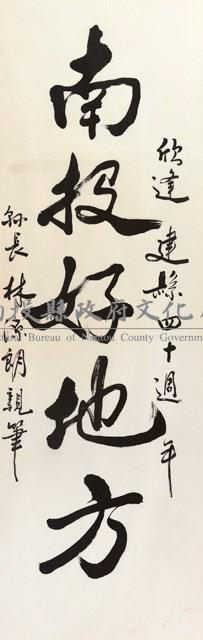 欣逢 建縣四十週年
南投好地方
縣長 林源朗親筆
南投縣政府文化局
Cultural Bureau of Nantou County Government